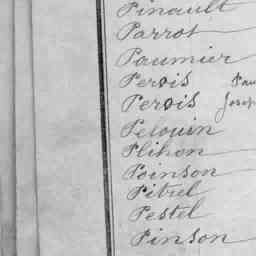 Pinault
Parrot
Paumier
Pervis Pau
Pervis Josep
Pelouin
Plihon
Poinson
Pitrel
Pestel
Pinson